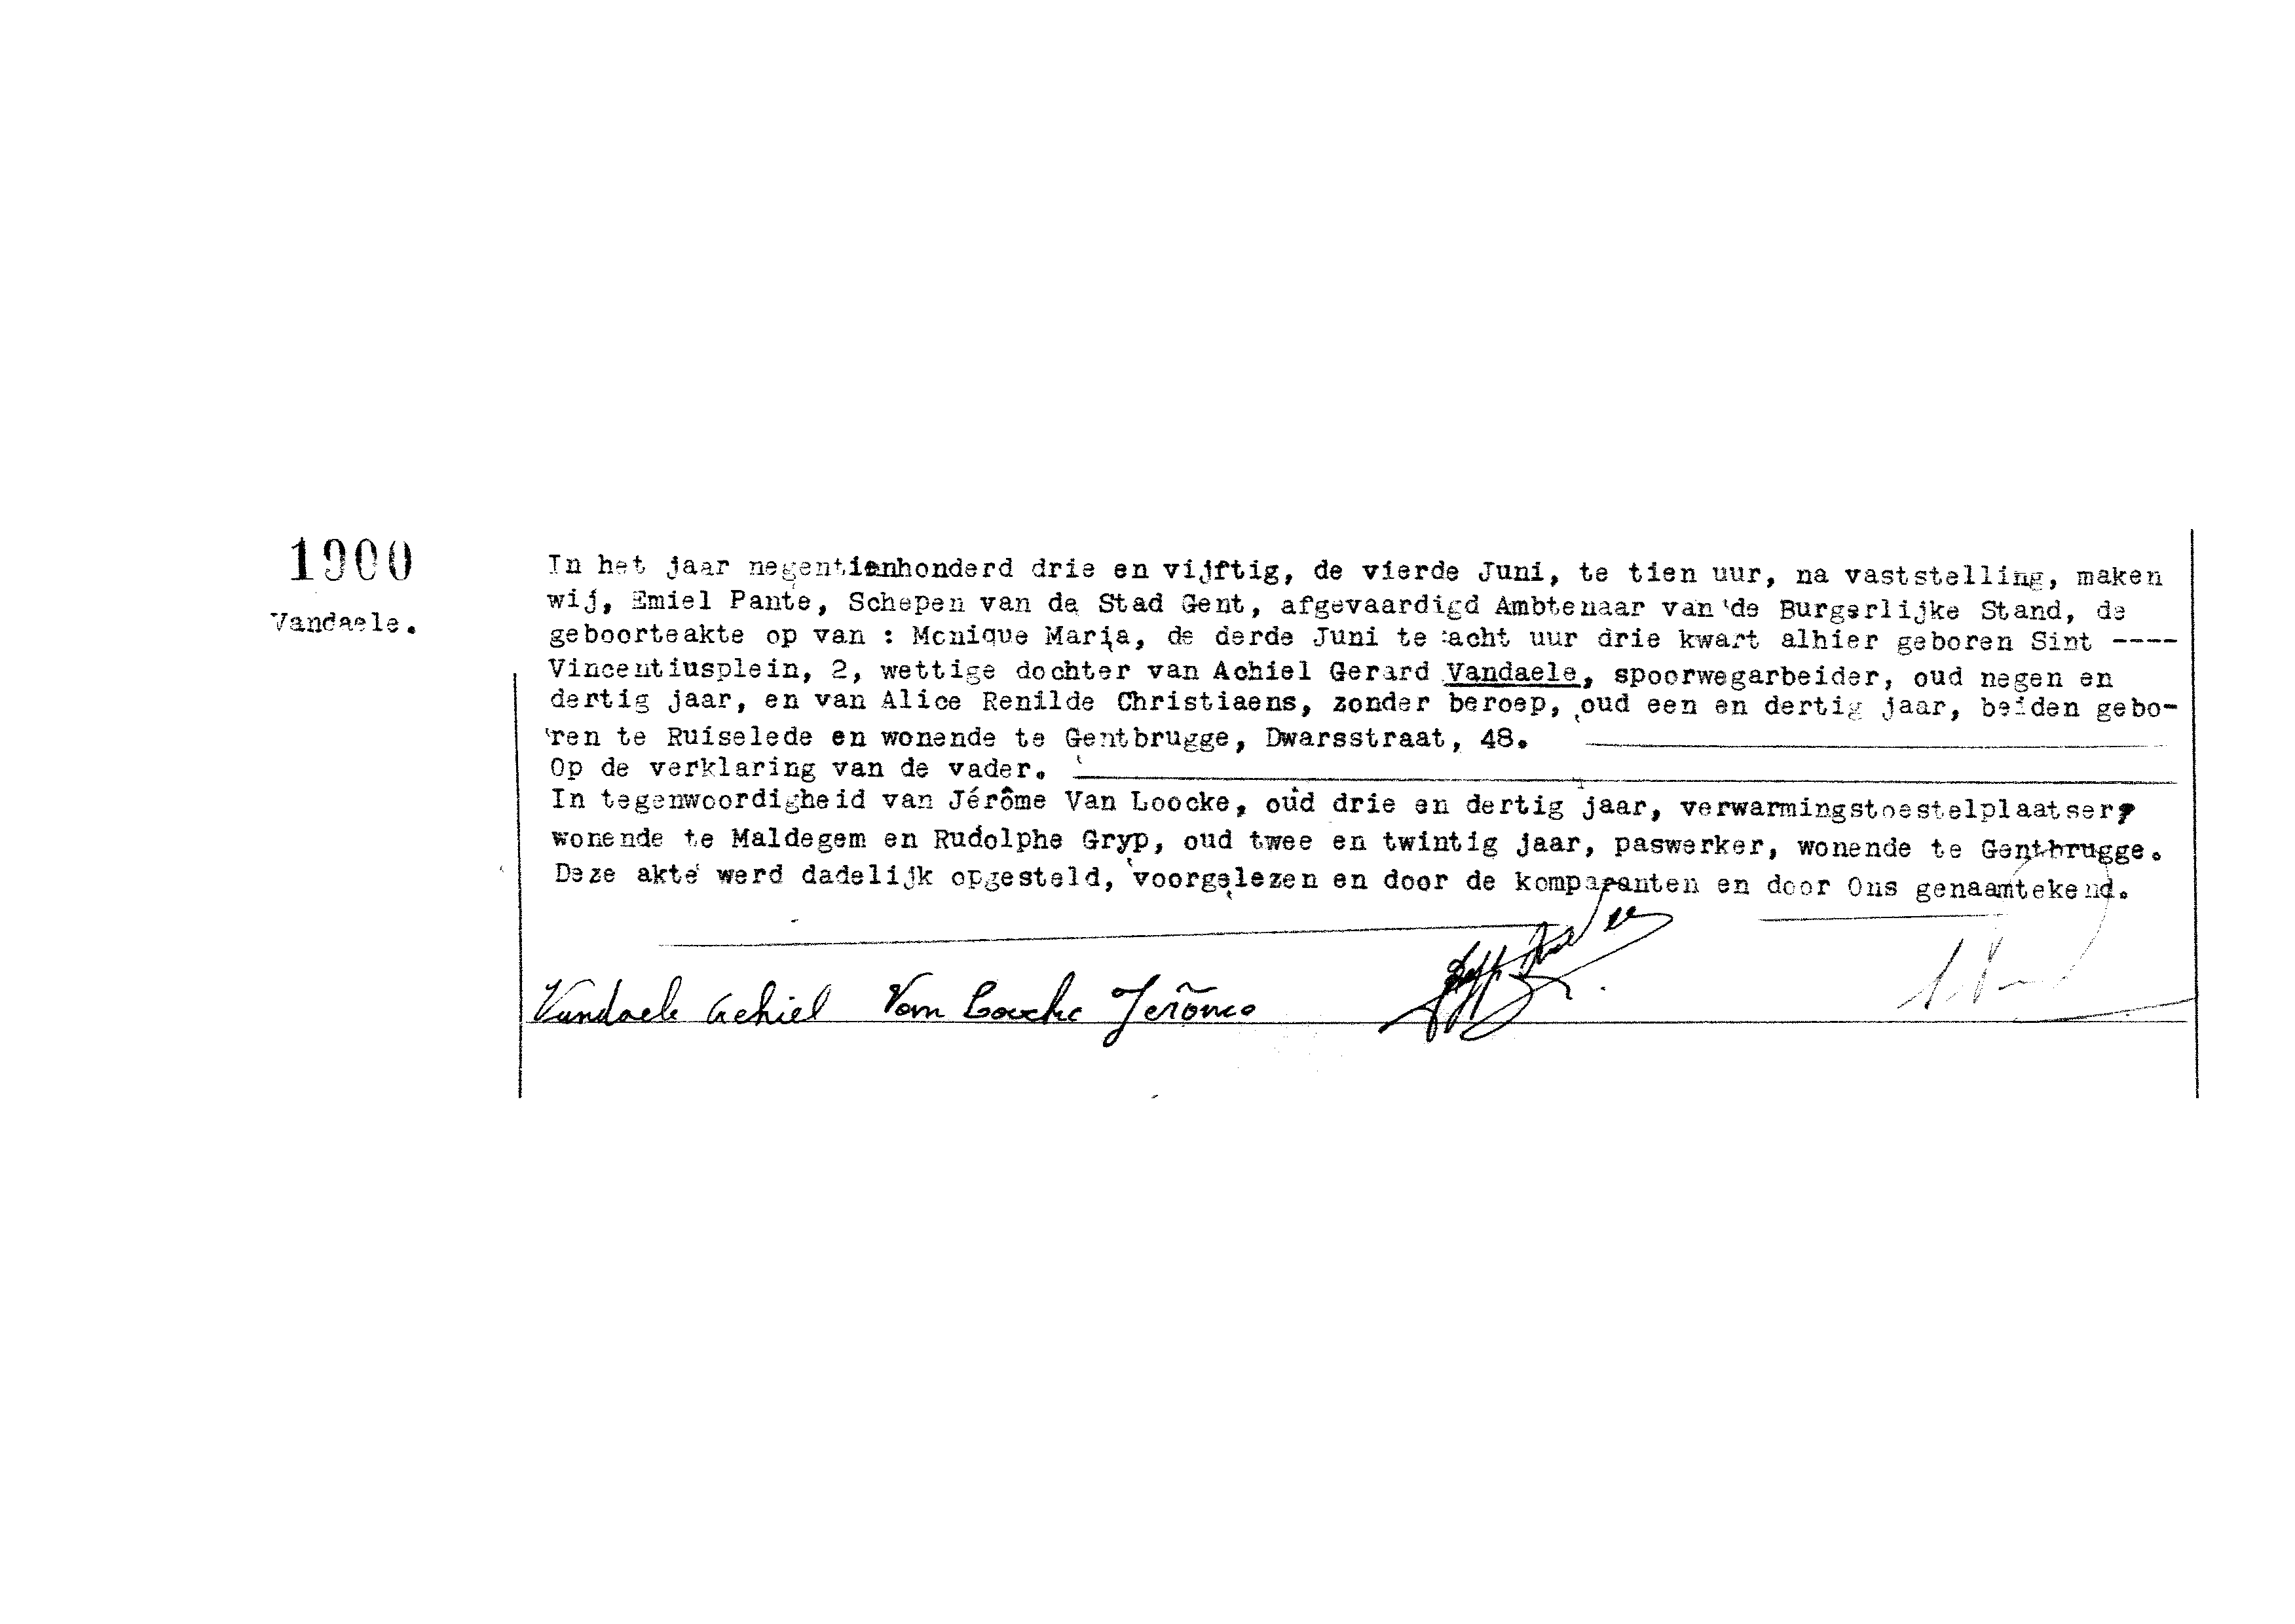 1900
Vandaele.
In het jaar negentienhonderd drie en vijftig, de vierde Juni, te tien uur, na vaststelling, maken
wij, Emiel Pante, Schepen van de Stad Gent, afgevaardigd Ambtenaar van de Burgerlijke Stand, de
geboorteakte op van : Monique Maria, de derde Juni te acht uur drie kwart alhier geboren Sint ----
Vincentiusplein, 2, wettige dochter van Achiel Gerard Vandaele, spoorwegarbeider, oud negen en
dertig jaar, en van Alice Renilde Christiaens, zonder beroep, oud een en dertig jaar, beiden gebo-
ren te Ruiselede en wonende te Gentbrugge, Dwarsstraat, 48.
Op de verklaring van de vader.
In tegenwoordigheid van Jérôme Van Loocke, oud drie en dertig jaar, verwarmingstoestelplaatser,
wonende te Maldegem en Rudolphe Gryp, oud twee en twintig jaar, paswerker, wonende te Gentbrugge.
Deze akte werd dadelijk opgesteld, voorgelezen en door de komparanten en door Ons genaamtekend.
Vandaele Achiel Van Loocke Jerôme